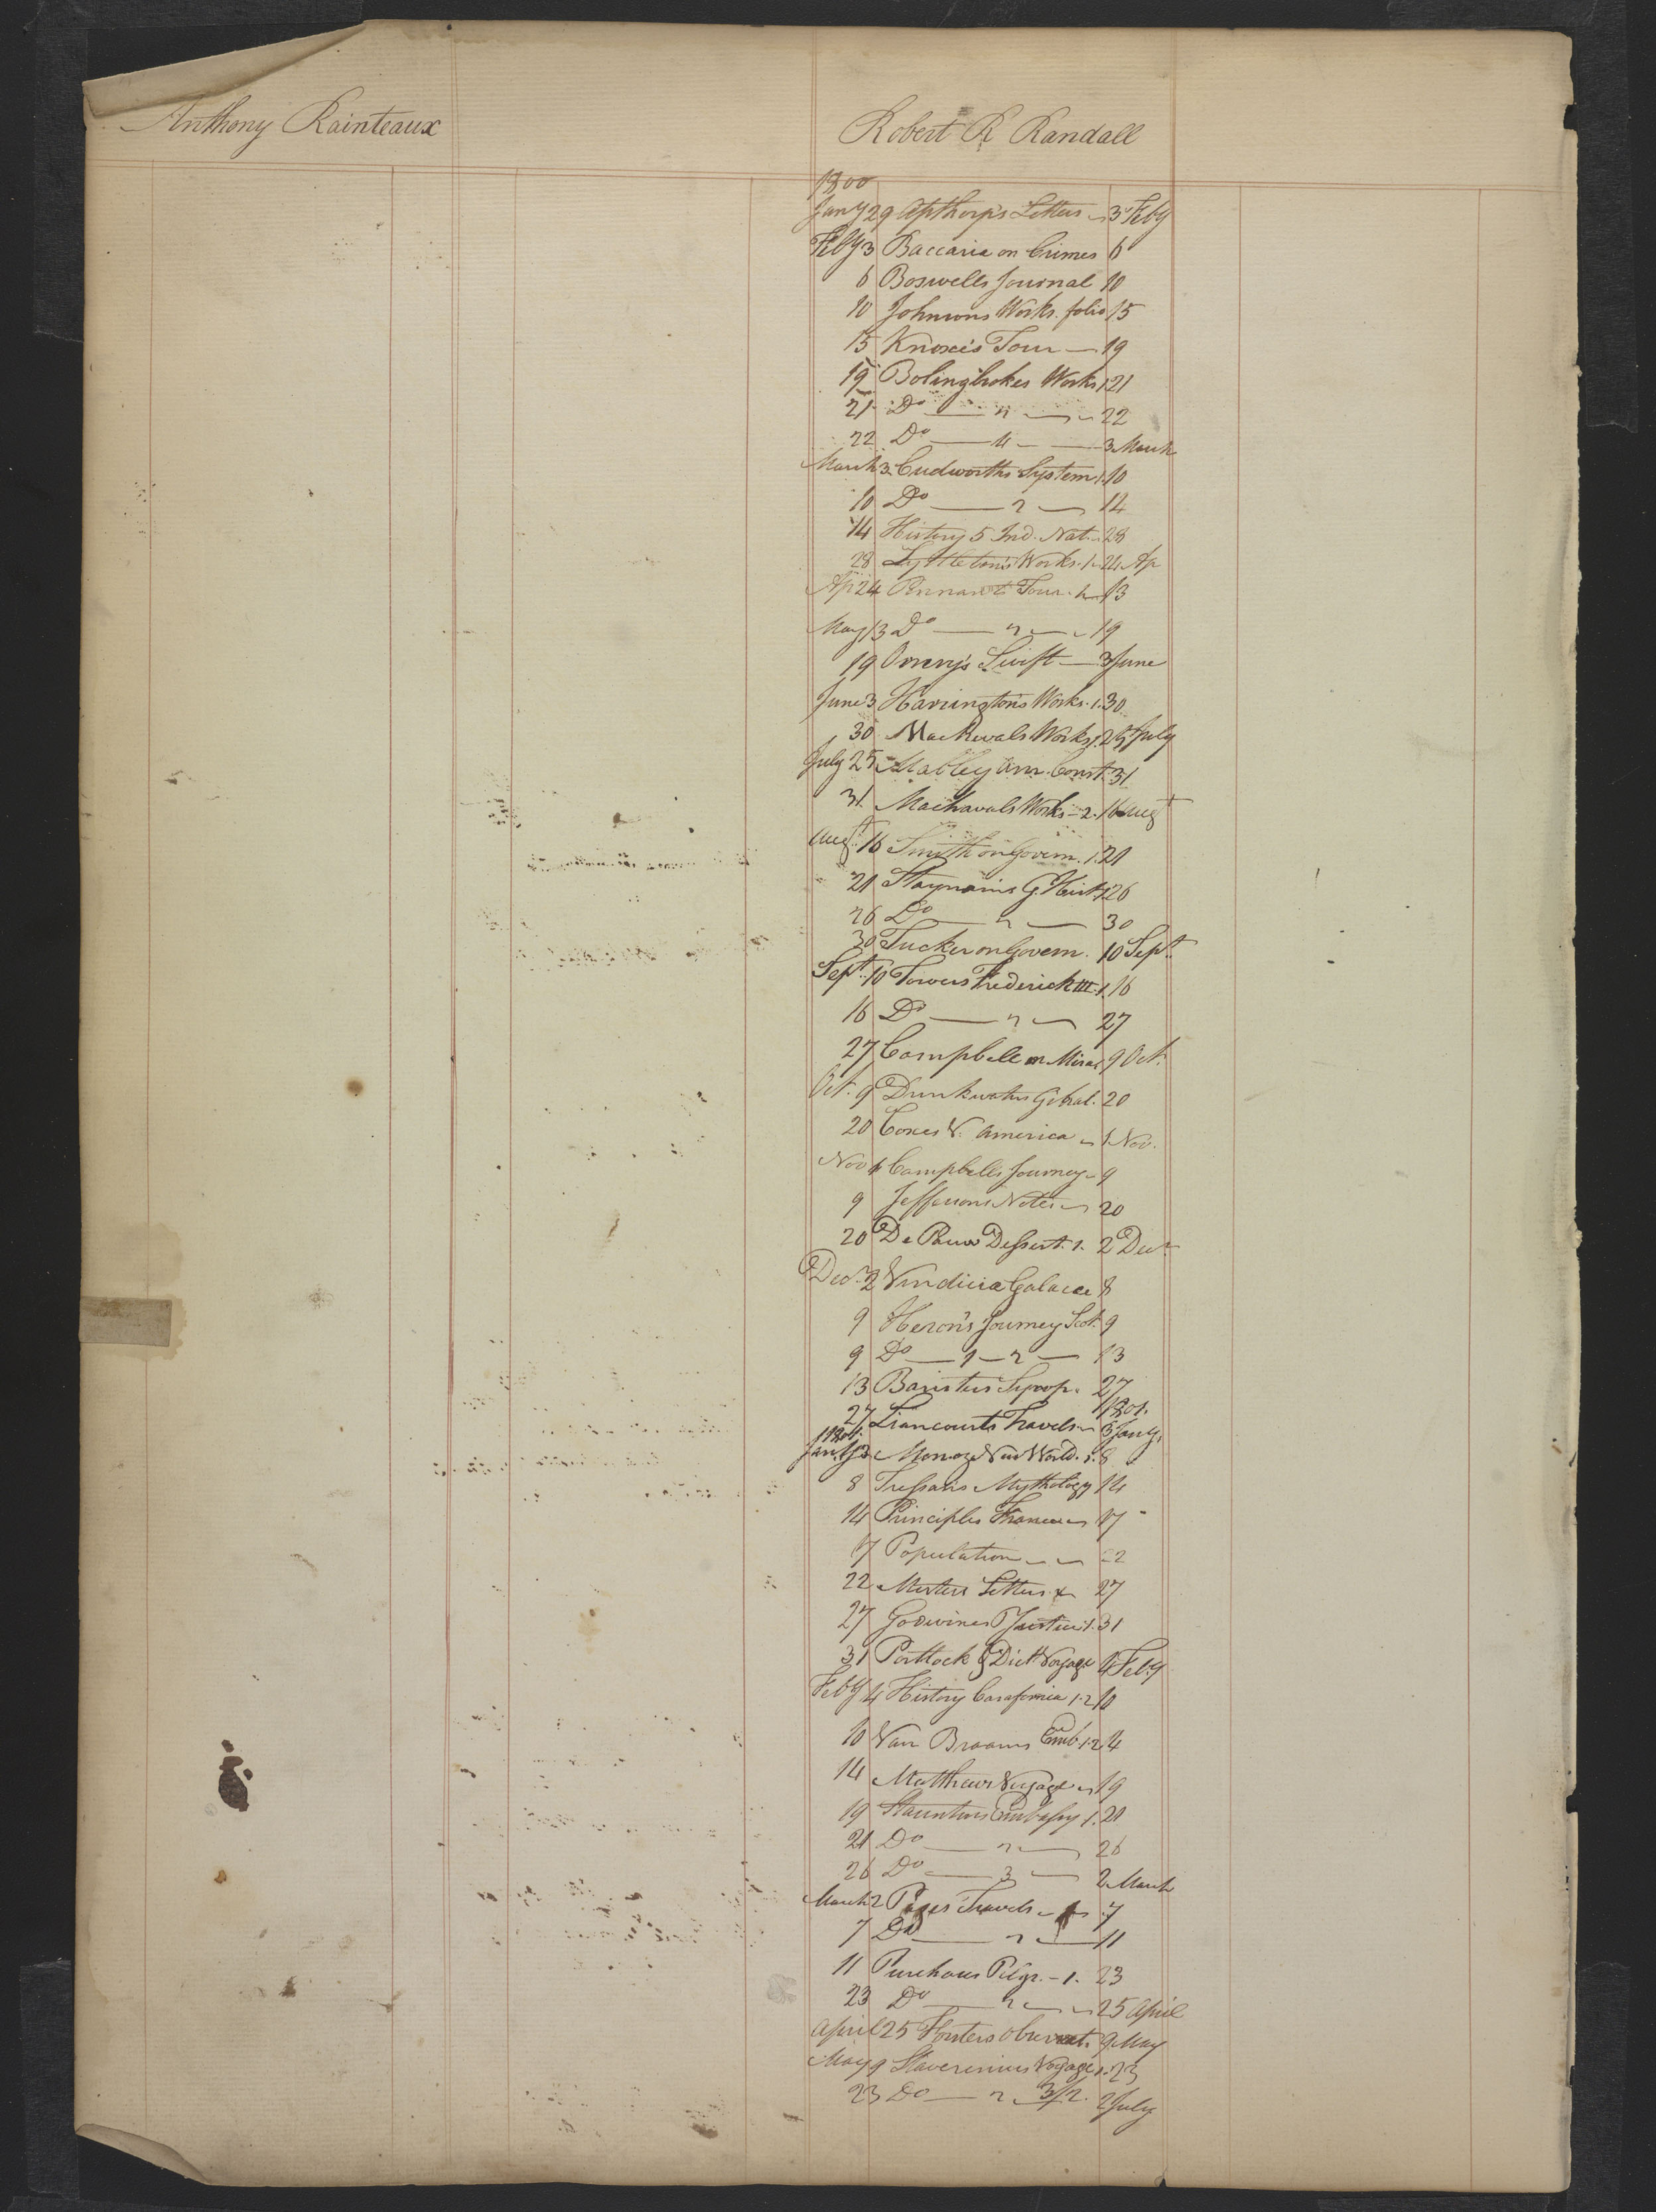 Anthony Rainteaux
Robert R Randall
1800
Jany 29 Apthorp's Letters 3 Feby
Feby 3 Baccaria on Crimes 6
6 Boswells Journal 10
10 Johnsons Works. folio 15
15 Knoxe's Tour — 19
19 Bolingbrokes Works 1 21
21 Do — 2 — 22
22 Do — 4 — 3 March
March 3 Cudworths System 1. 10
10 Do — 2 — 14
14 History 5 Ind. Nat. 28
28 Lyttleton's Works. 1 24 Ap
Ap 24 Pennant Tour. 1 13
May 13 Do — 2 — 19
19 Orrery's Swift — 3 June
June 3 Harringtons Works. 1. 30
30 Mackevals Works 1. 25 July
July 25 Mabley Am. Const. 31
31 Machavals Works – 2. 16 Augt
Augt. 16 Smith on Govern. 1. 21
21 Raynains G. Hist. 1 26
26 Do — 2 — 30
30 Tucker on Govern. 10 Sept.
Sept. 10 Towers Frederick III. 1. 16
16 Do — 2 — 27
27 Campbell on Mirac 9 Oct.
Oct. 9 Drinkwaters Gibral. 20
20 Coxes V. America 1 Nov.
Nov 1 Campbells Journey 9
9 Jeffersons Notes 20
20 De Pauw Dessert. 1. 2 Decr
Decr. 2 Vindicia Galacae 8
9 Heron's Journey Scot. 9
9 Do — 1 — 2 — 13
13 Baristers Synop. 27
1801.
27 Liancourts Travels 3 Jany.
1801.
Jany 3 Monroz New World. 1. 8
8 Tressans Mythology 14
14 Principles 17
17 Population — 22
22 Letters 27
27 Godwines P Justice 1. 31
31 Portlock & Dict Voyage 4 Feby
Feby 4 History Carafornia 1.2 10
10 Van Braams Emb. 1.2 14
14 Matthews Voyage 19
19 Stauntons Embassy 1. 21
21 Do — 2 — 26
26 Do — 3 — 2 March
March 2 Pages Travels – 1 7
7 Do — 2 — 11
11 Purchaus Pilgr. – 1. 23
23 Do — 2 — 25 April
April 25 Forsters Observat. 9 May
May 9 Staverinus Voyage 1. 23
23 Do — 2 3/2. 2 July